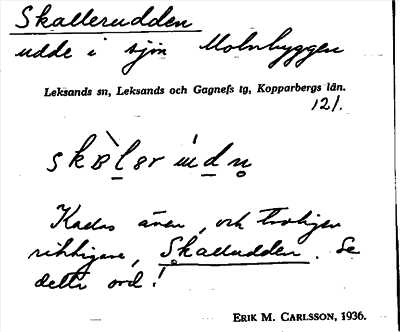 Skallerudden
udde i sjön Molnbyggen
Leksands sn, Leksands och Gagnefs tg, Kopparbergs län.
12/.
Kallas även, och troligen
riktigare, Skalludden. Se
detta ord!
ERIK M. CARLSSON, 1936.